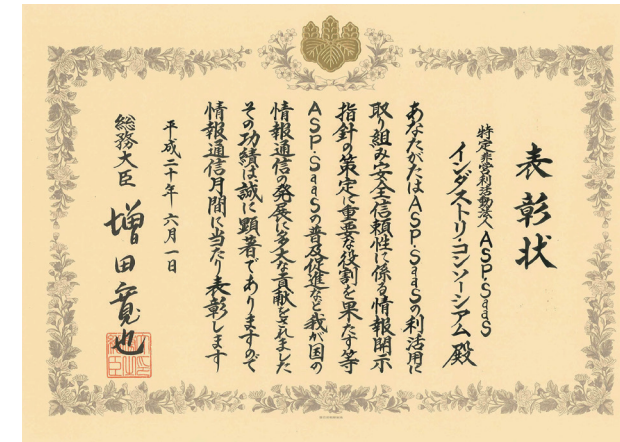 表彰状
特定非営利活動法人ASP・SaaS
インダストリ・コンソーシアム殿
あなたがたはASP・SaaSの利活用に
取り組み安全・信頼性に係る情報開示
指針の策定に重要な役割を果たす等
ASP・SaaSの普及促進など我が国の
情報通信の発展に多大な貢献をされました
その功績は誠に顕著でありますので
情報通信月間に当たり表彰します
平成二十年六月一日
総務大臣 増田寛也